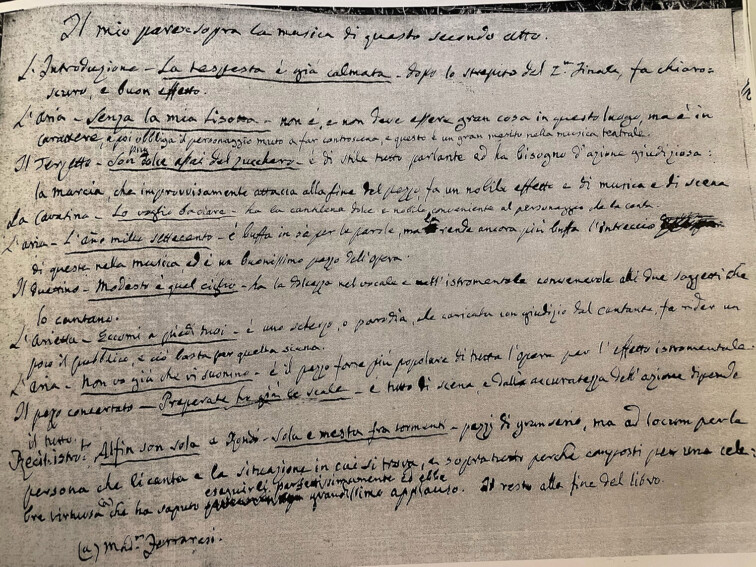 Il mio parere sopra la musica di questo secondo atto.
L'Introduzione - La tempesta è già calmata - dopo lo strepito del I.mo Finale, fa chiaro=
scuro, e buon effetto.
L'Aria - Senza la mia Lisotta - non è, e non deve essere gran cosa in questo luogo, ma è in
carattere, e poi obbliga il personaggio muto a far controscena, e questo è un gran merito nella musica teatrale.
Il Terzetto - Son più dolce assai del zucchero - è di stile tutto parlante ed ha bisogno d'azione giudiziosa:
la marcia, che improvvisamente attacca alla fine del pezzo, fa un nobile effetto e di musica e di scena
La Cavatina - Lo voglio baciare - ha la cantilena dolce e nobile, conveniente al personaggio, che la canta.
L'aria - L'año mille settecento - è buffa in se per le parole, ma rende ancora più buffa l'intreccio
di queste nella musica ed è un buonissimo pezzo dell'opera.
Il Duettino - Modesto è quel ciglio - ha la dolcezza nel vocale e nell'istromentale convenevole alli due soggetti che
lo cantano.
L'Arietta - Eccomi a piedi tuoi - è uno scherzo, o parodia, che caricata con giudizio dal cantante, fa rider un
poco il pubblico, e ciò basta per quella scena.
L'Aria - Non vo già che vi suonino - è il pezzo forse più popolare di tutta l'opera per l'effetto istromentale.
Il pezzo concertato - Preparate le scale - è tutto di scena, e dalla accuratezza dell'azione dipende
il tutto.
Recit: istro: Alfin son sola e Rondò - Sola e mesta fra tormenti - pezzi di gran serio, ma ad locum per la
persona che li canta e la situazione in cui si trova, e sopratutto perché composti per una cele=
bre virtuosa (a) che ha saputo eseguirli perfettissimamente ed ebbe grandissimo applauso. Il resto alla fine del libro.
(a) Mad.m Ferraresi.